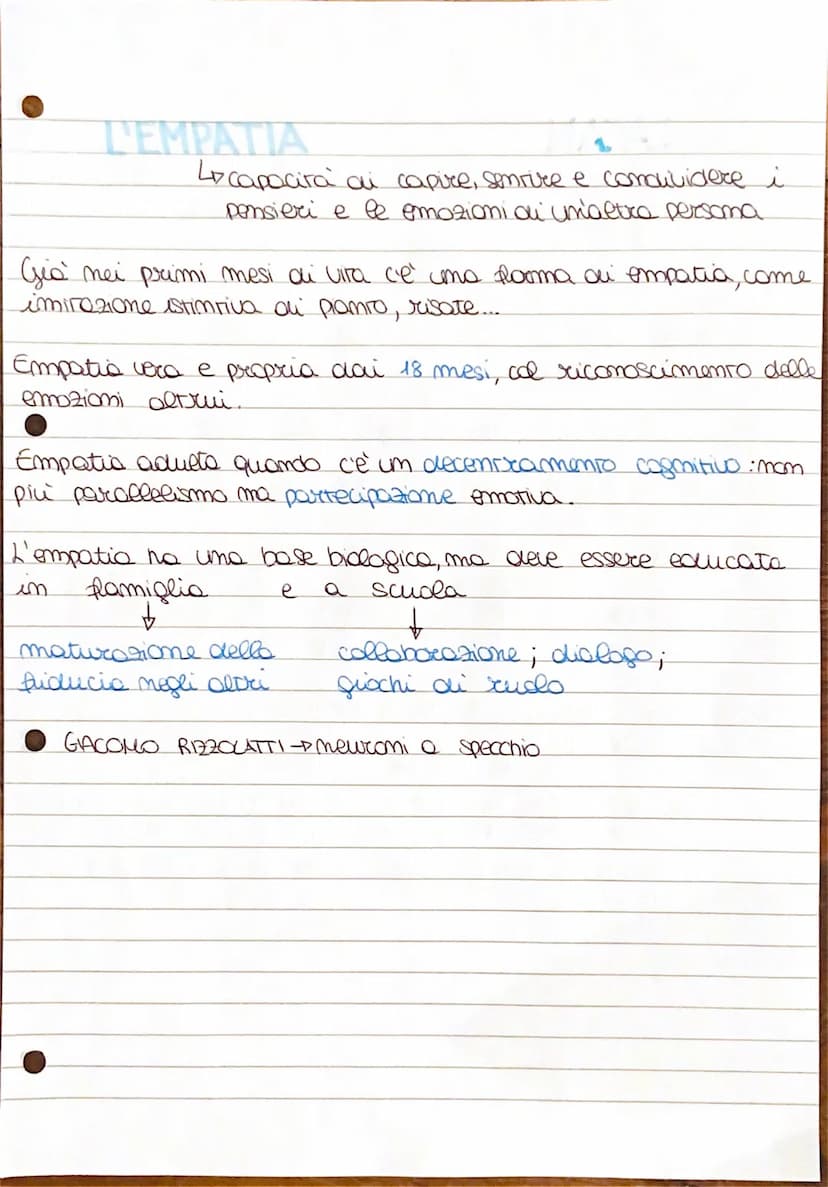 L'EMPATIA
↳ capacità di capire, sentire e condividere i
pensieri e le emozioni di un'altra persona
Già nei primi mesi di vita c'è una forma di empatia, come
imitazione istintiva di pianto, risate...
Empatia vera e propria dai 18 mesi, col riconoscimento delle
emozioni altrui.
Empatia adulta quando c'è un decentramento cognitivo: non
più parallelismo ma partecipazione emotiva.
L'empatia ha una base biologica, ma deve essere educata
in famiglia e a scuola
↓ ↓
maturazione della collaborazione; dialogo;
fiducia negli altri giochi di ruolo
GIACOMO RIZZOLATTI → neuroni a specchio